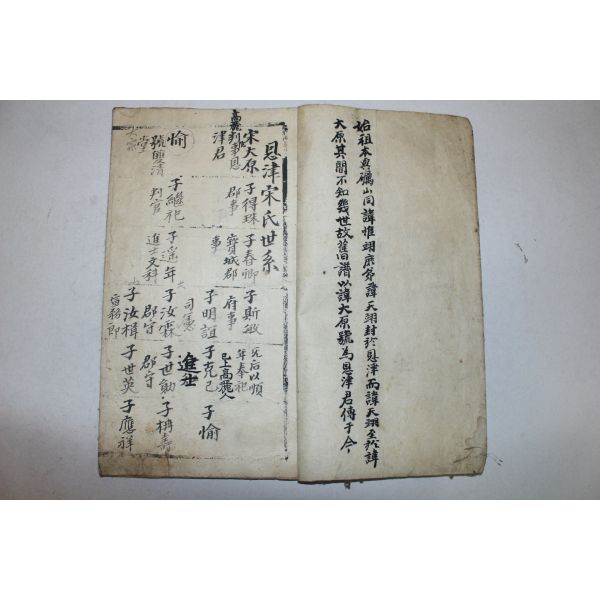 始祖本與礪山同諱惟翊庶弟諱天翊封於恩津而諱天翊至於諱
大原其間不知幾世故舊譜以諱大原號為恩津君傳于今
恩津宋氏世系
宋大原 子得珠 子春卿 子斯敏
高麗判事恩津君
郡事
寶城郡事
府事
先后以順年奉祀
已上高麗人
子明誼 子克己 子愉
司憲
進士
愉
號雙清堂
子繼祀 子遙年 子汝霖 子世勛 子枏壽
判官
進士文科
郡守
郡守
子汝楫 子世英 子應祥
宣務郎